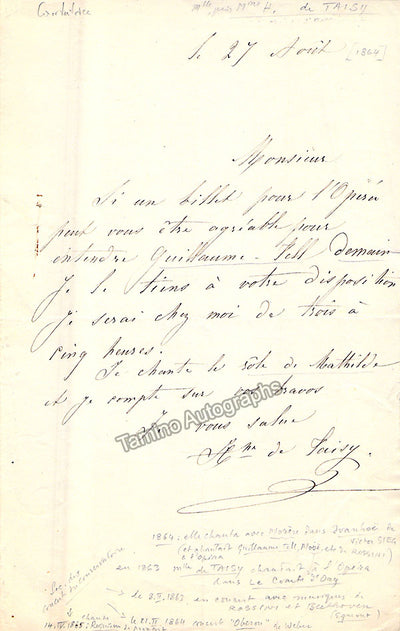 Cantatrice
Mlle puis Mme H. de TAISY
le 27 Août [1864]
Monsieur
Si un billet pour l'Opéra
peut vous être agréable pour
entendre Guillaume-Tell demain
Je le tiens à votre disposition
Je serai chez moi de trois à
cinq heures.
Je chante le rôle de Mathilde
et je compte sur vos bravos
Je vous salue
de Taisy.
Tamino Autographs
1864: elle chanta avec Morère dans Ivanhoé de
Victor SIEG
(et chantait Guillaume Tell, Moïse, etc de ROSSINI)
à l'Opéra
en 1863 Mlle de TAISY chantait à l'Opéra
dans Le Comte d'Ory
Soc. des
concerts du conservatoire
→ le 8.II.1863 en concert avec musiques de
ROSSINI et Beethoven
(Egmont)
→ le 21.II 1864 concert "Oberon" de Weber
chante
14.IV.1865: